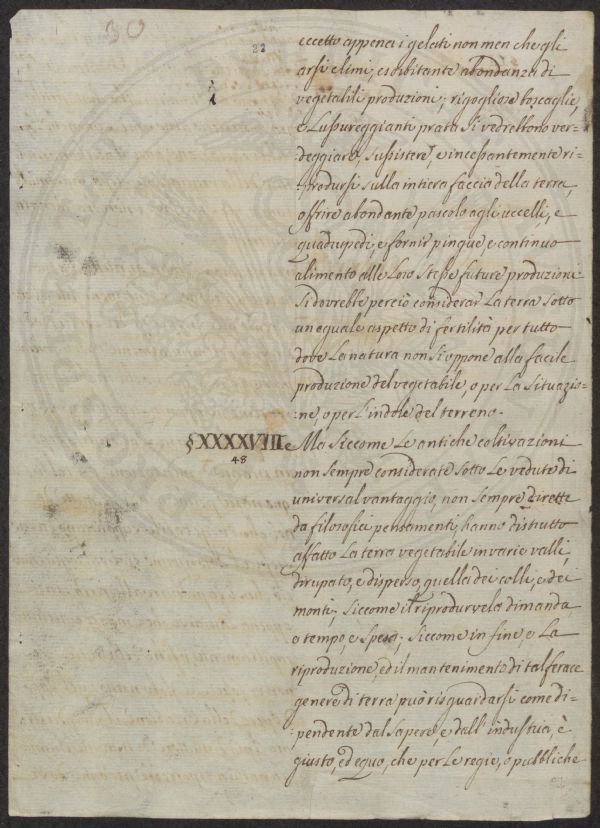 30
22
eccetto appena i gelati non men che gli
arsi climi, esorbitante abondanza di
vegetabili produzioni; rigogliose boscaglie,
e Lussureggianti prata si vedrebbono ver-
deggiare, sussistere, e incessantemente ri-
prodursi sulla intiera faccia della terra,
offrire abondante pascolo agli uccelli, e
quadrupedi, e fornir pingue, e continuo
alimento alle Loro stesse future produzioni.
Si dovrebbe perciò considerar La terra sotto
un eguale aspetto di fertilità per tutto
dove La natura non si oppone alla facile
produzione del vegetabile, o per La situazio-
ne, o per L'indole del terreno.
§XXXXVIII.e Ma siccome Le antiche coltivazioni
48
non sempre considerate sotto Le vedute di
universal vantaggio, non sempre dirette
da filosofici pensamenti, hanno distrutto
affatto La terra vegetabile in varie valli,
dirupato, e disperso, quella dei colli, e dei
monti; siccome il riprodurvela dimanda,
e tempo, e spesa; siccome in fine, e La
riproduzione, ed il mantenimento di tal ferace
genere di terra può risguardarsi come di-
pendente dal sapere, e dall'industria, è
giusto, ed equo, che per Le regie, o pubbliche